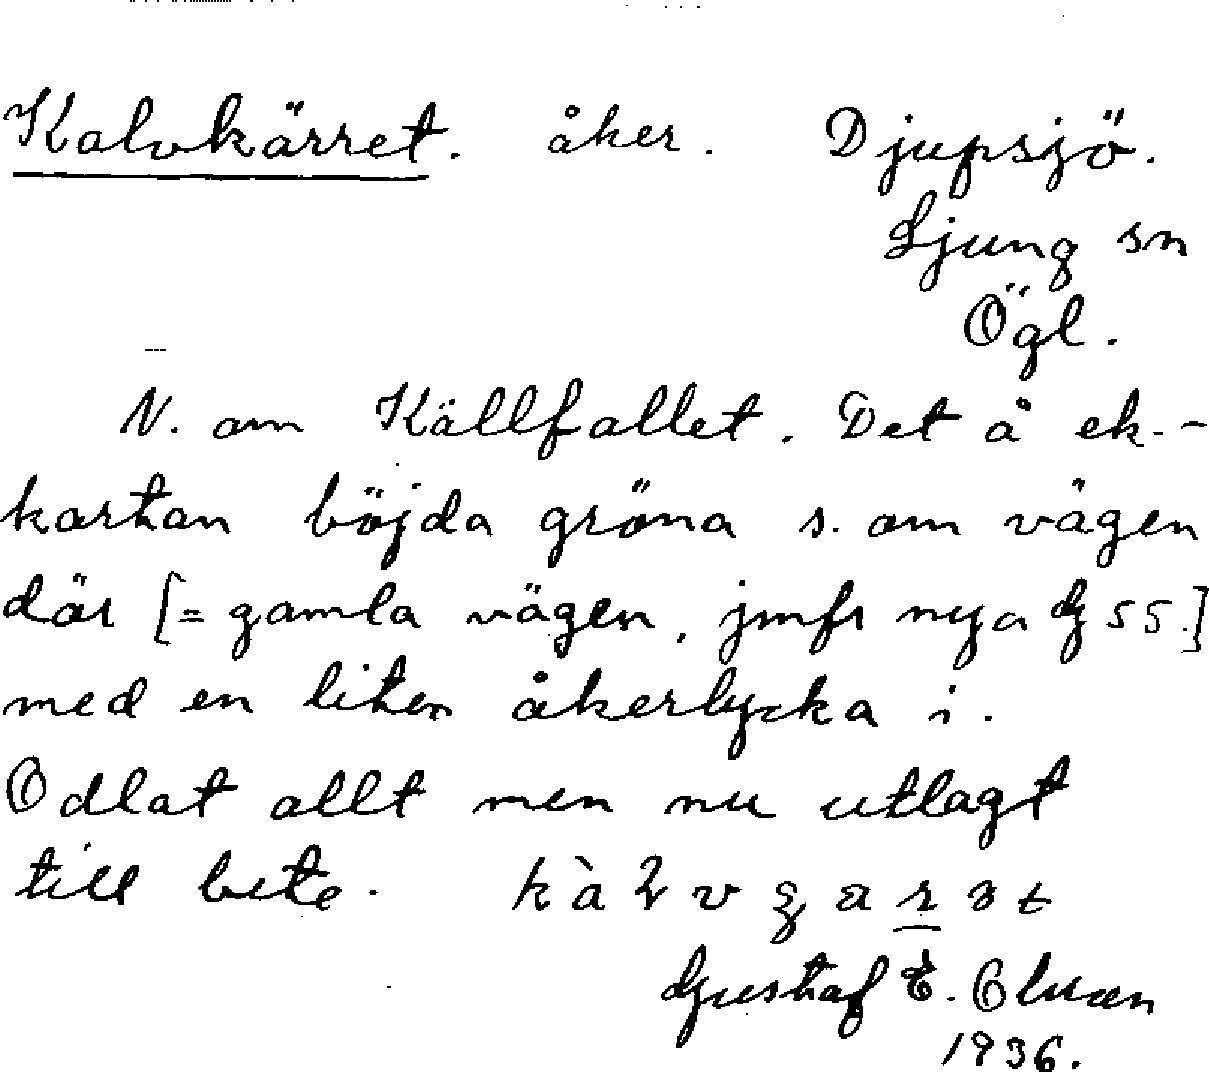 Kalvkärret. åker. Djupsjö.
Ljung sn
Ögl.
N. om Källfallet. Det å ek.-
kartan böjda gröna s. om vägen
där [= gamla vägen, jmfr nya G 55.]
med en liten åkerlycka i.
Odlat allt men nu utlagt
till bete.
Gustaf E.
1936.